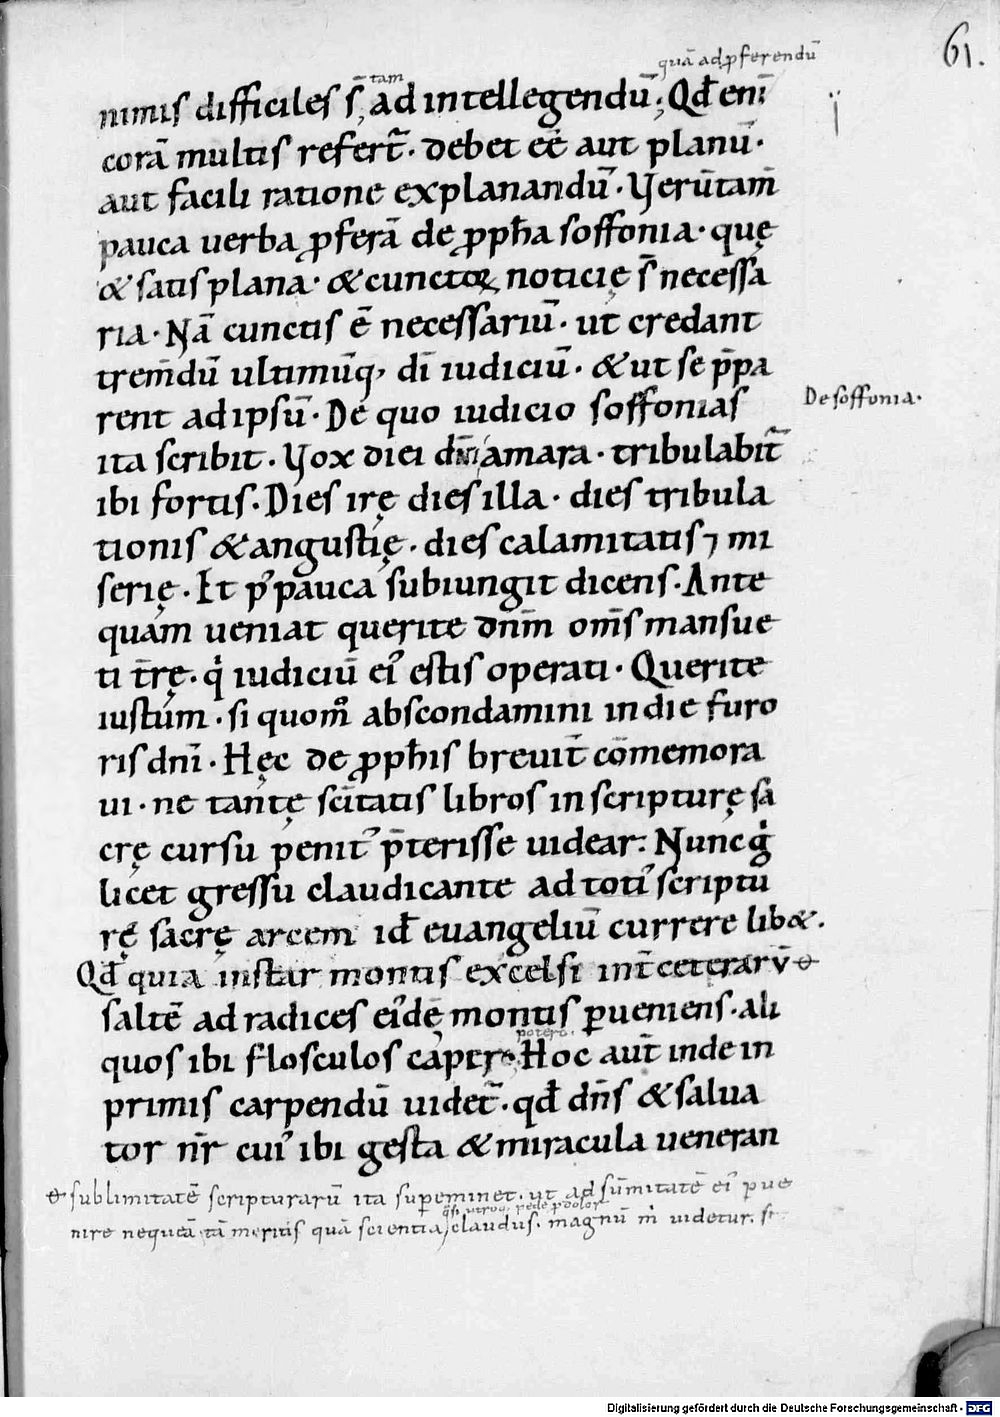 61.
quā ad ꝓferendū
tam
nimis difficiles s̄, ad intellegendū; Qđ eni
corā multis refert̄. debet eē aut planū.
aut facili ratione explanandū. Verūtam̄
pauca verba ꝓferā de ꝓph̄a soffonia. quę
& satis plana. & cunctoꝝ noticię s̄ necessa
ria. Nā cunctis ē necessariū. ut credant
trem̄dū ultimūq, dī iudiciū. & ut se p̄pa
rent ad ipsū. De quo iudicio soffonias
De soffonia.
ita scribit. Vox diei dn̄i amara. tribulabit̄
ibi fortis. Dies irę dies illa. dies tribula
tionis & angustię. dies calamitatis ⁊ mi
serię. Et p' pauca subiungit dicens. Ante
quam ueniat querite dn̄m om̄s mansue
ti t̄rę. qi iudiciū ei' estis operati. Querite
iustum. si quom̊ abscondamini in die furo
ris dn̄i. Hęc de ꝓph̄is breuit̄ cōmemora
ui. ne tantę sc̄itatis libros in scripturę sa
crę cursu penit' p̄terisse uidear: Nunc g̊
licet gressu claudicante ad toti' scriptu
rę sacrę arcem id̄ euangeliū currere lib&.
Qđ quia instar montis excelsi int̄ ceterarū
saltē ad radices ei'dē montis ꝑueniens. ali
quos ibi flosculos capere
poterō.
Hoc aut̄ inde in
primis carpendū uidet̄. qđ dn̄s & salua
tor nr̄ cui' ibi gesta & miracula ueneran
sublimitatē scripturarū ita suꝑeminet. ut ad sūmitatē ei' ꝑue
q̄si utroq, pede ꝑ dolor
nire nequeā tā meritis quā scientia, claudus. magnū m̄ uidetur. si
Digitalisierung gefördert durch die Deutsche Forschungsgemeinschaft - DFG